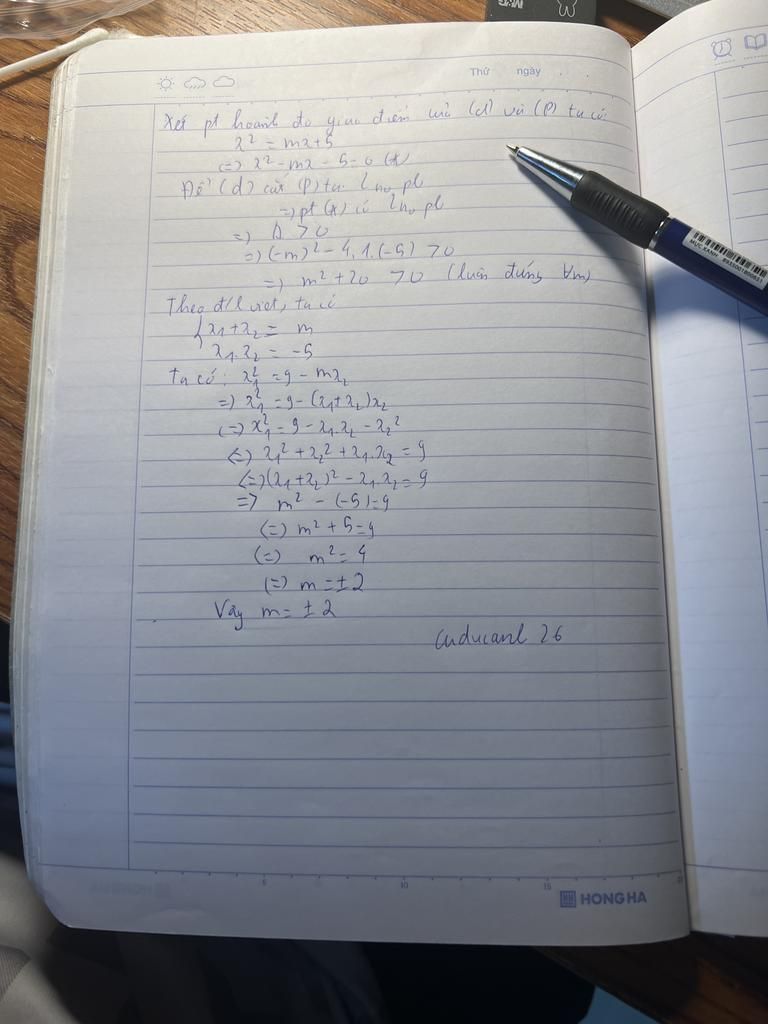 Thứ ngày
Xét pt hoành độ giao điểm của (d) và (P) ta có:
x² = mx+5
(=) x² - mx - 5 = 0 (*)
Để (d) cắt (P) tại 2 no pb
=) pt (*) có 2 no pb
=) Δ > 0
=) (-m)² - 4.1.(-5) > 0
=) m² + 20 > 0 (luôn đúng ∀m)
Theo đ/l viet, ta có
{ x₁ + x₂ = m
x₁.x₂ = -5
Ta có: x₁² = 9 - mx₂
=) x₁² = 9 - (x₁+x₂)x₂
(=) x₁² = 9 - x₁.x₂ - x₂²
(=) x₁² + x₂² + x₁.x₂ = 9
(=) (x₁ + x₂)² - x₁.x₂ = 9
=) m² - (-5) = 9
(=) m² + 5 = 9
(=) m² = 4
(=) m = ± 2
Vậy m = ± 2
cuducanh 26
5 10 15
HH HONG HA
MỰC XANH
8935001800831